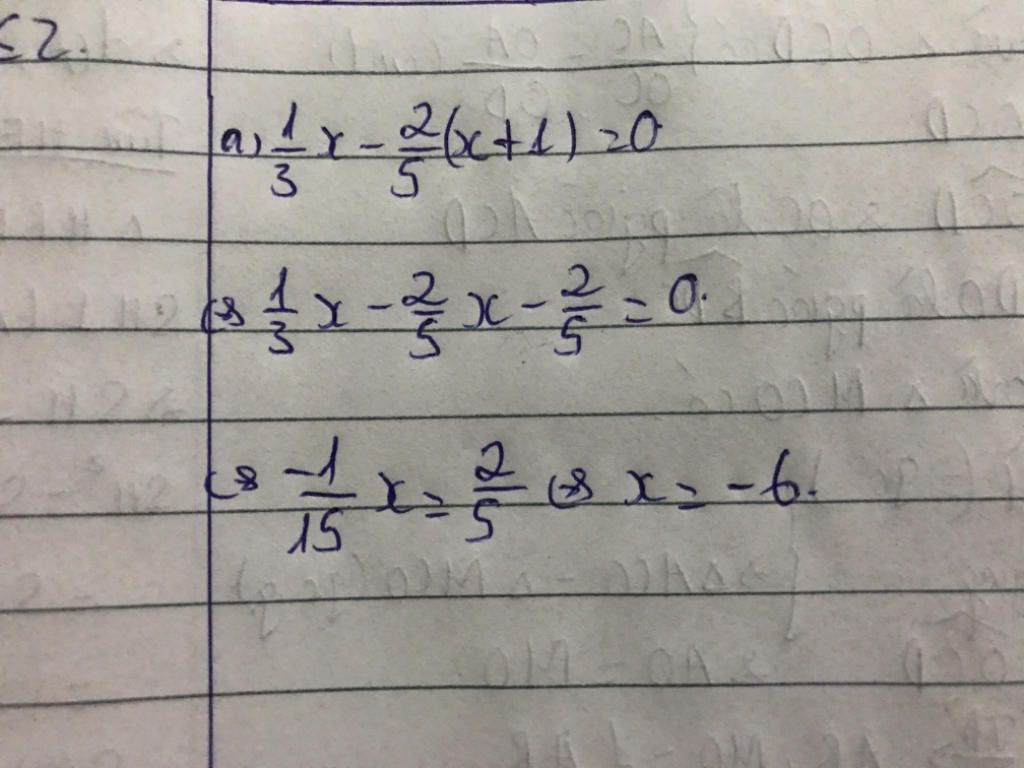 a) \frac{1}{3}x - \frac{2}{5}(x+1) = 0
⇔ \frac{1}{3}x - \frac{2}{5}x - \frac{2}{5} = 0.
⇔ \frac{-1}{15}x = \frac{2}{5} ⇔ x = -6.